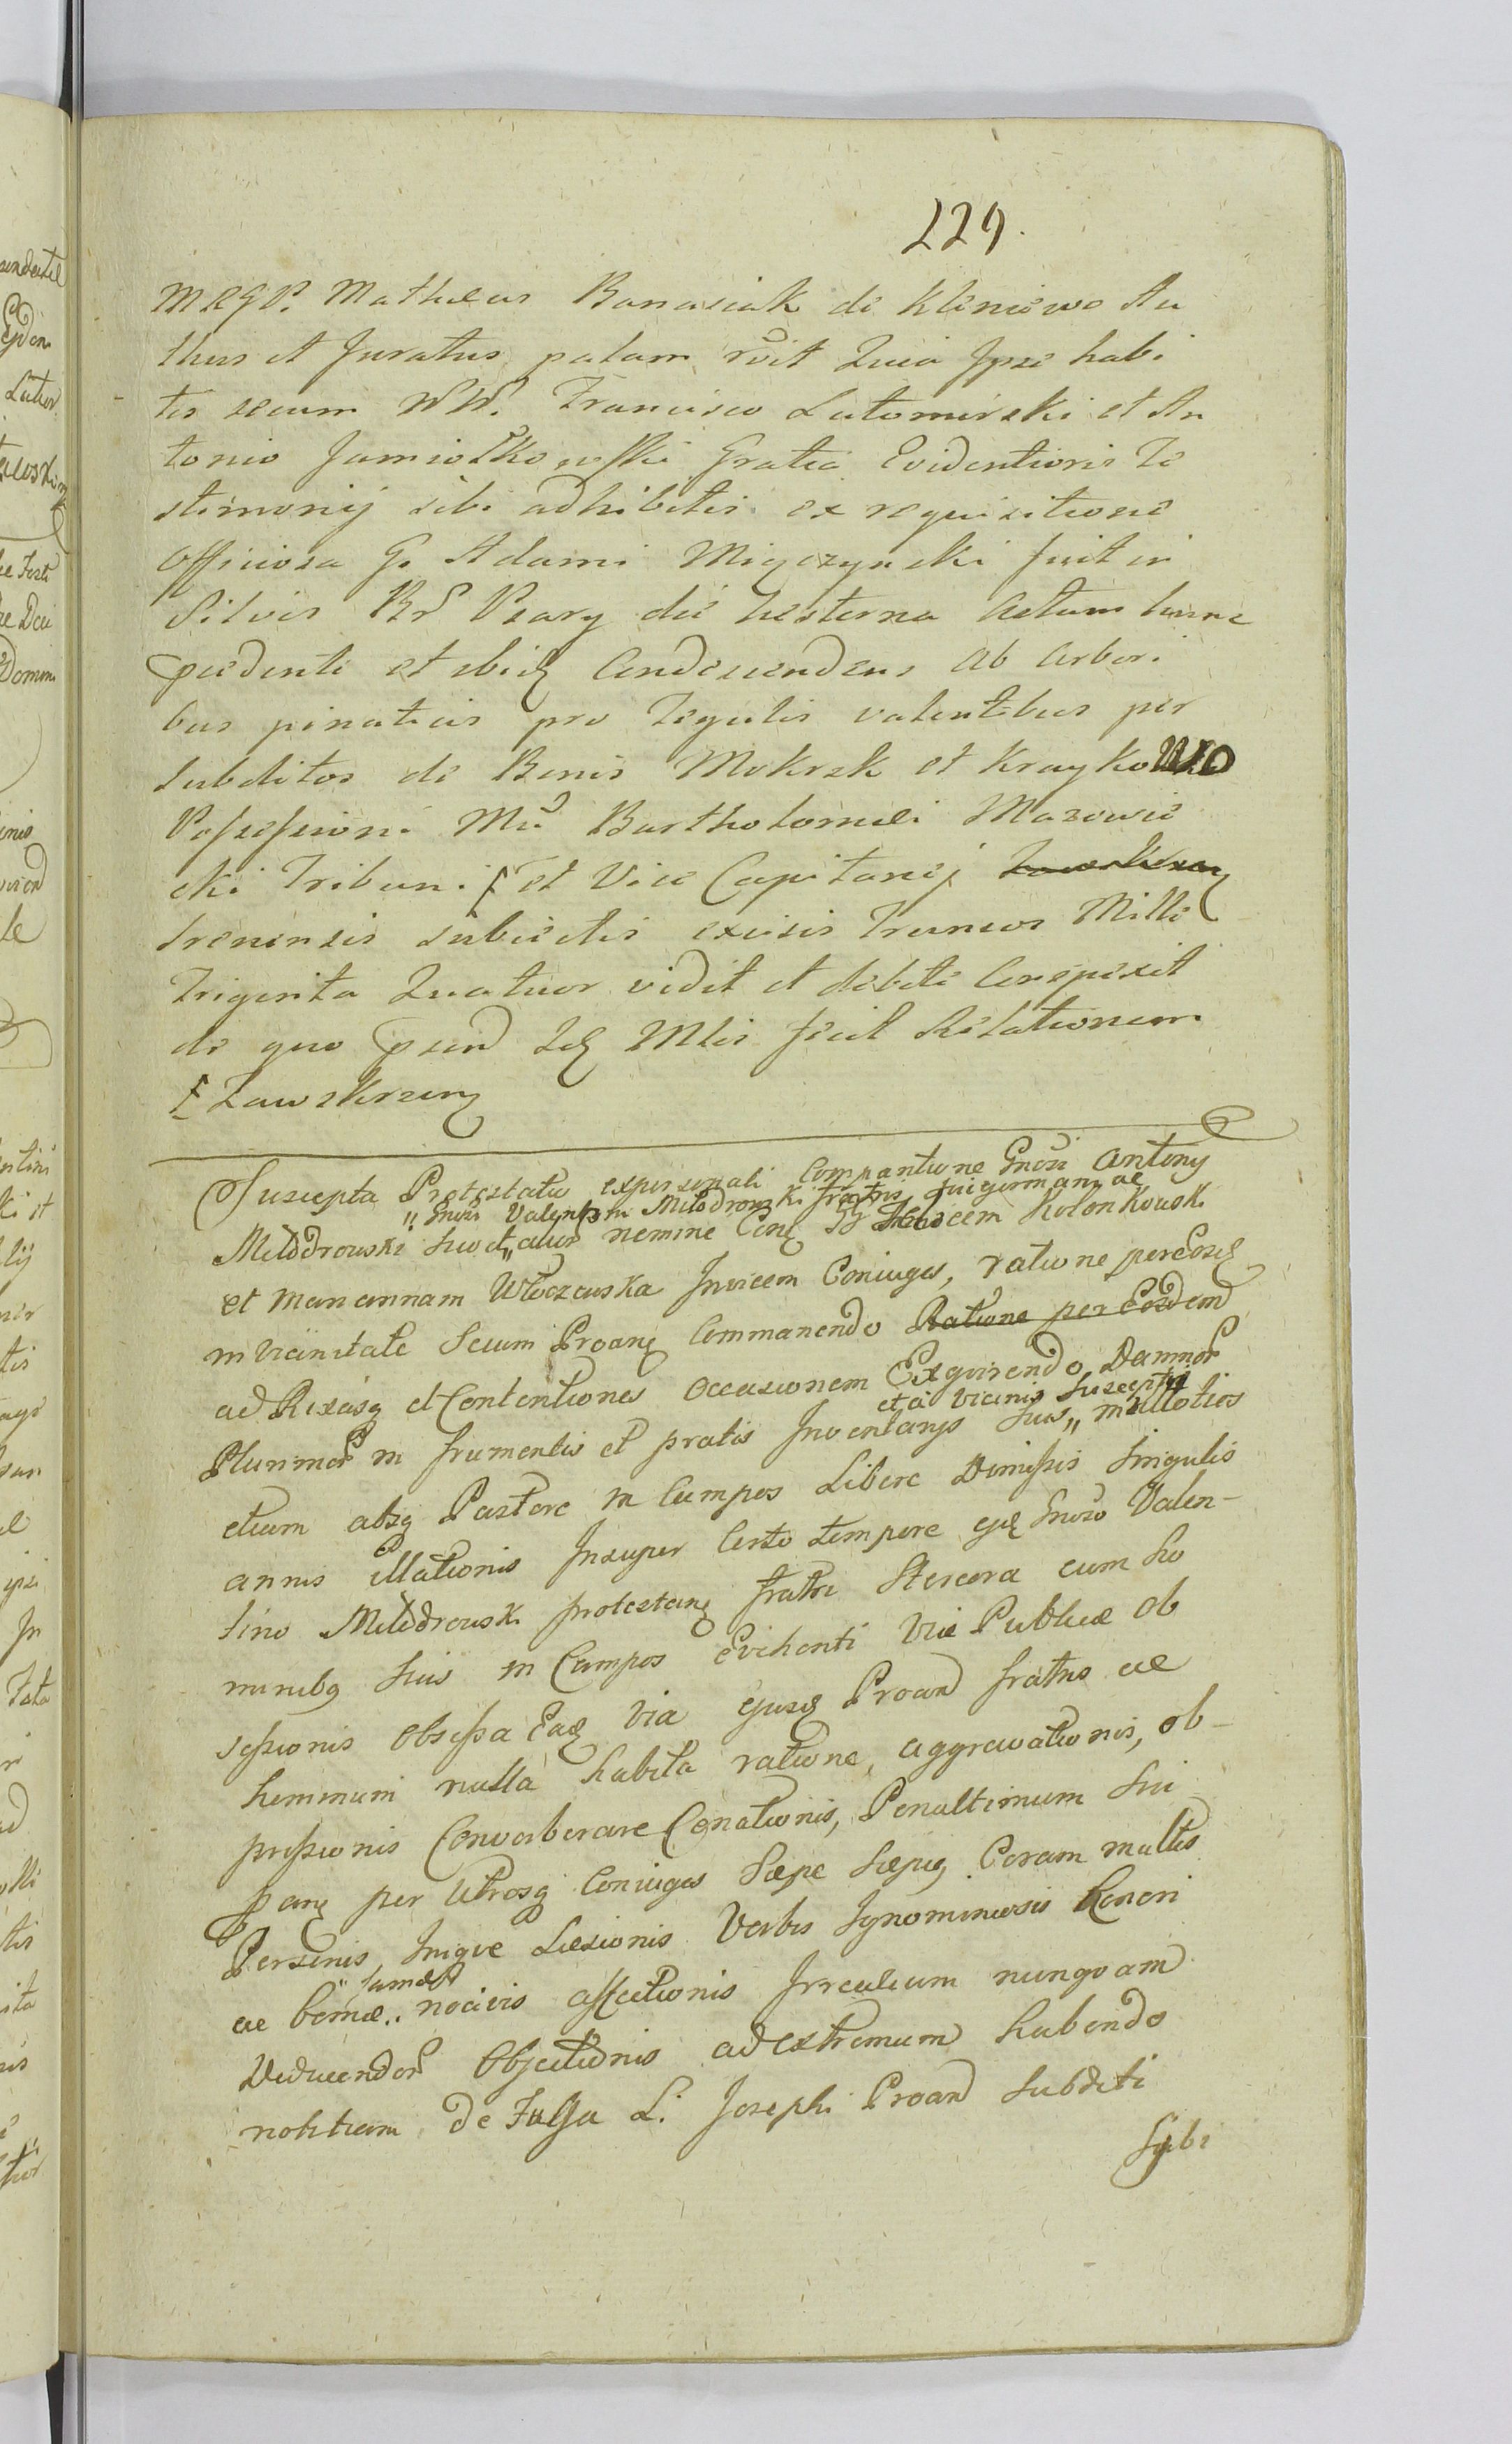 229.
MRGP. Matheus Banasiak de Kleniewo Au
thus et Juratus palam rñit Quia Ipse habi
tis secum NN. Francisco Lutomirski et An
tonio Jamiołkowski Gratia Evidentioris Te
stimonij sibi adhibitis ex requisitione
officiosa G. Adami Mięczynski fuit in
Silvis Br Psary die hesterna Actum hunc
pcedenti et ibidę Condescendens ab Arbori
bus pinaticis pro Tegulis valentibus per
subditos de Bonis Mokrzk et Kraykowo
Possessioni Mci Bartholomei Mazowie
cki Tribuni f et Vice Capitanej
Srenensis subiectis excisis Truncos Mille
Triginta Quatuor vidit et debite Conspexit
de quo pñd Idę Mlis fecit Relationem
f Zawskrzenę
Suscepta Protestatio ex personali Compartione Gnosi Antony
" Gnosi Valentini Młodrowski fratris sui germany ac
Młodrowski suo et " alior nemine Conę Kolonkowski
et Mariannam Włoczewska Invicem Coniuges, ratione per Eosdę
in vicinitate Secum Proanę Commanendo Ratione per Eosdem
ad Rixasq et Contentiones Occasionem Exquirendo, Damnor
et a vicinis susceptis
Plurimor in frumentis et pratis Inventarys suis " multoties
etiam absq Pastore in Campos Libere Dimissis singulis
annis illationis Insuper Certo tempore ejdę Gnoso Valen-
tino Młodrowski protestanę fratri Stercora cum ho
minibq suis in Campos Evehenti Viæ Publicæ Ob
sessionis obsessa Eadę Via ejusdę Proand fratris ac
hominum nulla habita ratione, aggravationis, ob-
pressionis Converberare Conationis, Penultimum sui
panę per Utrosq Coniuges Sæpe Sæpiq Coram multis
Personis, Inique Læsionis Verbis Ignominiosis honori
" famæq
ac bonæ " nocivis affectionis Irreculium nunquam
Deducendor Objectionis ad extremum habendo
notitiam de Fuga L. Josephi Proand subditi
Sybi